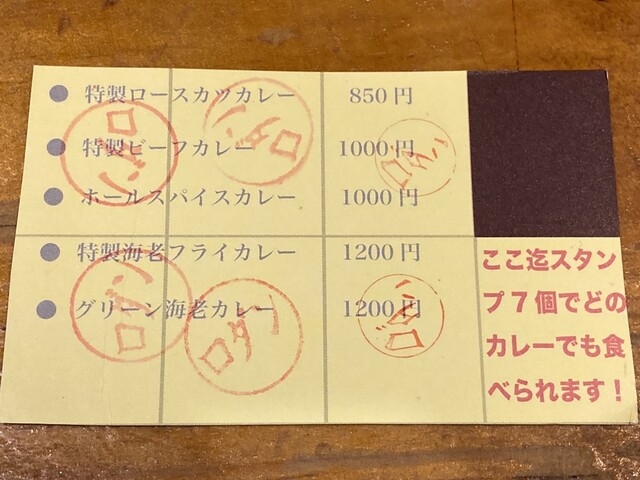 ● 特製ロースカツカレー 850円
● 特製ビーフカレー 1000円
● ホールスパイスカレー 1000円
● 特製海老フライカレー 1200円
● グリーン海老カレー 1200円
ここ迄スタン
プ7個でどの
カレーでも食
べられます!
ロダン
ロダン
ロダン
ロダン
ロダン
ロダン